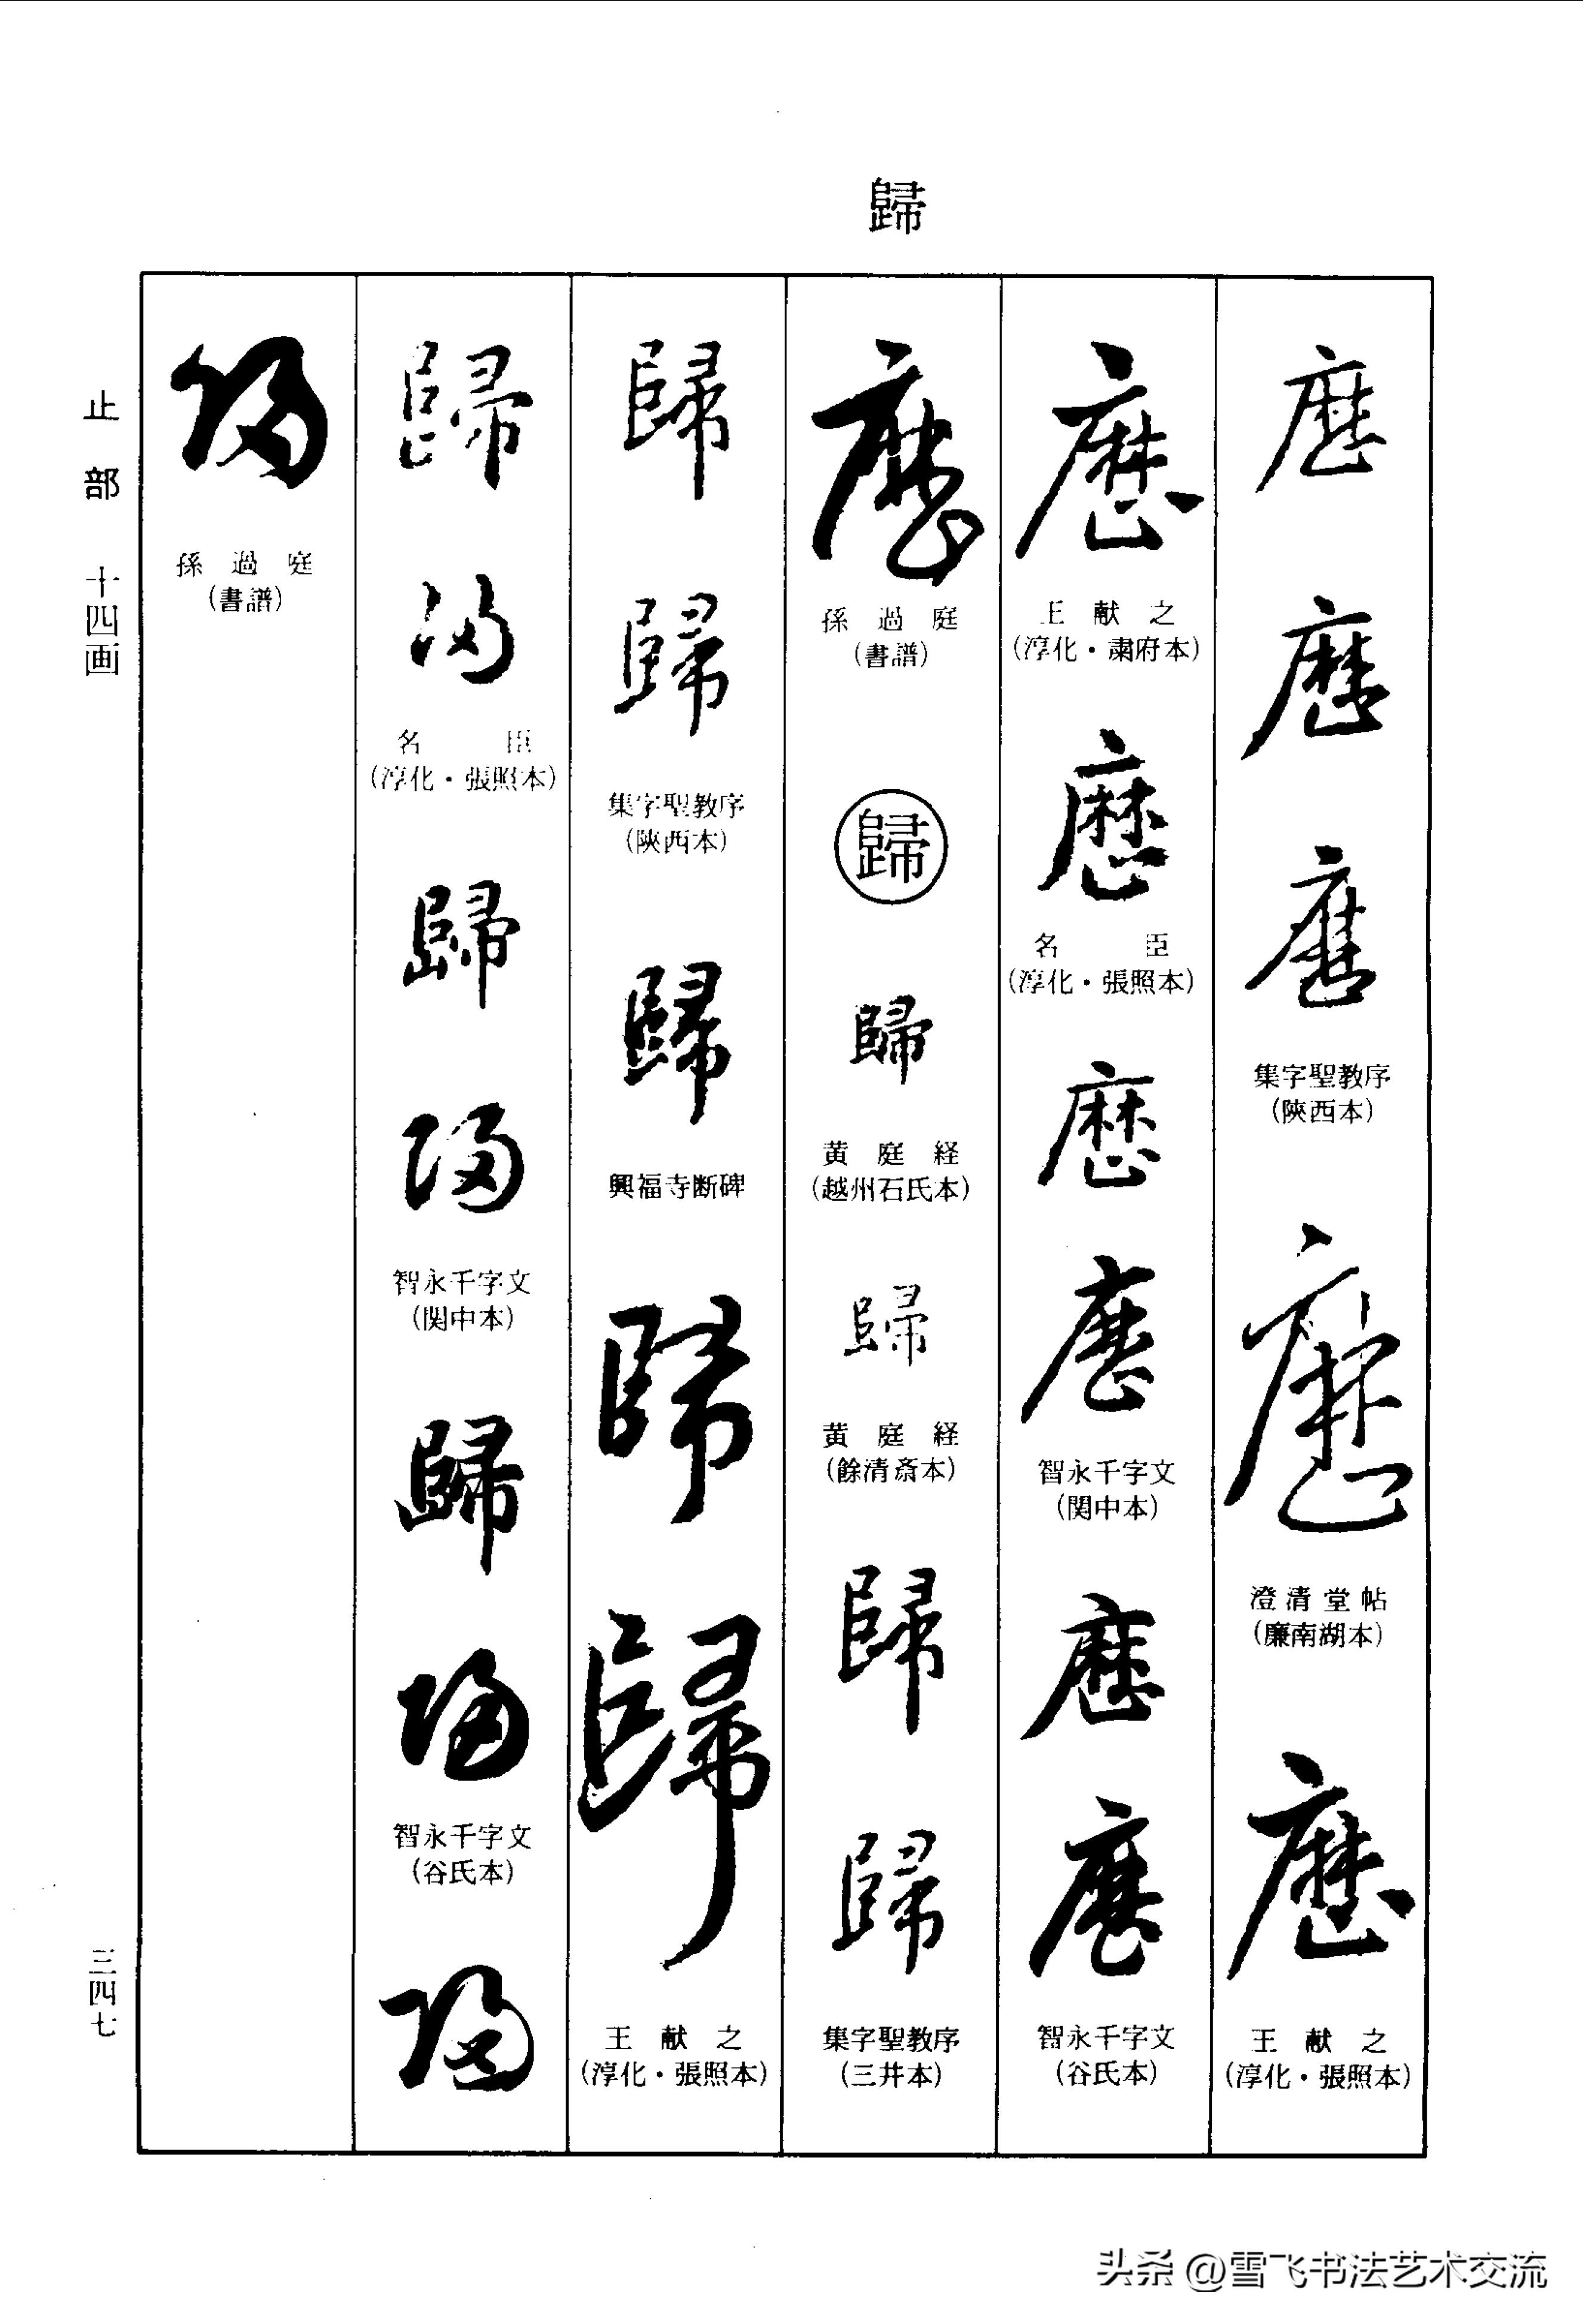 歸
歴
歴
歴
集字聖教序
(陝西本)
歴
澄清堂帖
(廉南湖本)
歴
王献之
(淳化・張照本)
歴
王献之
(淳化・粛府本)
歴
名臣
(淳化・張照本)
歴
歴
智永千字文
(関中本)
歴
歴
智永千字文
(谷氏本)
歴
孫過庭
(書譜)
歸
歸
黄庭経
(越州石氏本)
歸
黄庭経
(餘清斎本)
歸
歸
集字聖教序
(三井本)
歸
歸
集字聖教序
(陝西本)
歸
興福寺断碑
歸
歸
王献之
(淳化・張照本)
歸
歸
名臣
(淳化・張照本)
歸
歸
智永千字文
(関中本)
歸
歸
智永千字文
(谷氏本)
歸
歸
孫過庭
(書譜)
止部 十四画
三四七
头条 @雪飞书法艺术交流